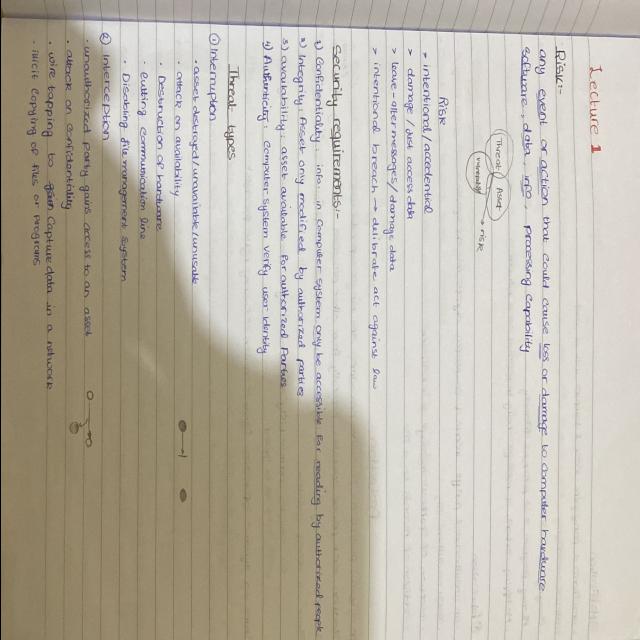 Lecture 1
Risk:-
any event or action that could cause loss or damage to computer hardware
software, data, info, processing capability
Threat Asset
→ risk
Risk
> intentional/accedential
> damage / Just access data
> leave-alter messages/ damage data
> intentional breach → delibrate act against law
Security requirements:-
1) Confidentiality: info. in computer system only be accessible for reading by authorized people
2) Integrity: Asset only modified by authorized parties
3) availability: asset available for authorized Parties
4) Authenticity: computer system verify user identity
Threat types
① Interruption
• asset destroyed/unavailable/unusable
• attack on availability
• Destruction of hardware
• cutting communication line
• Disabling file management system
② Interception
• unauthorized party gains access to an asset
• attack on confidentiality
• wire tapping to capture data in a network
• illicit copying of files or programs